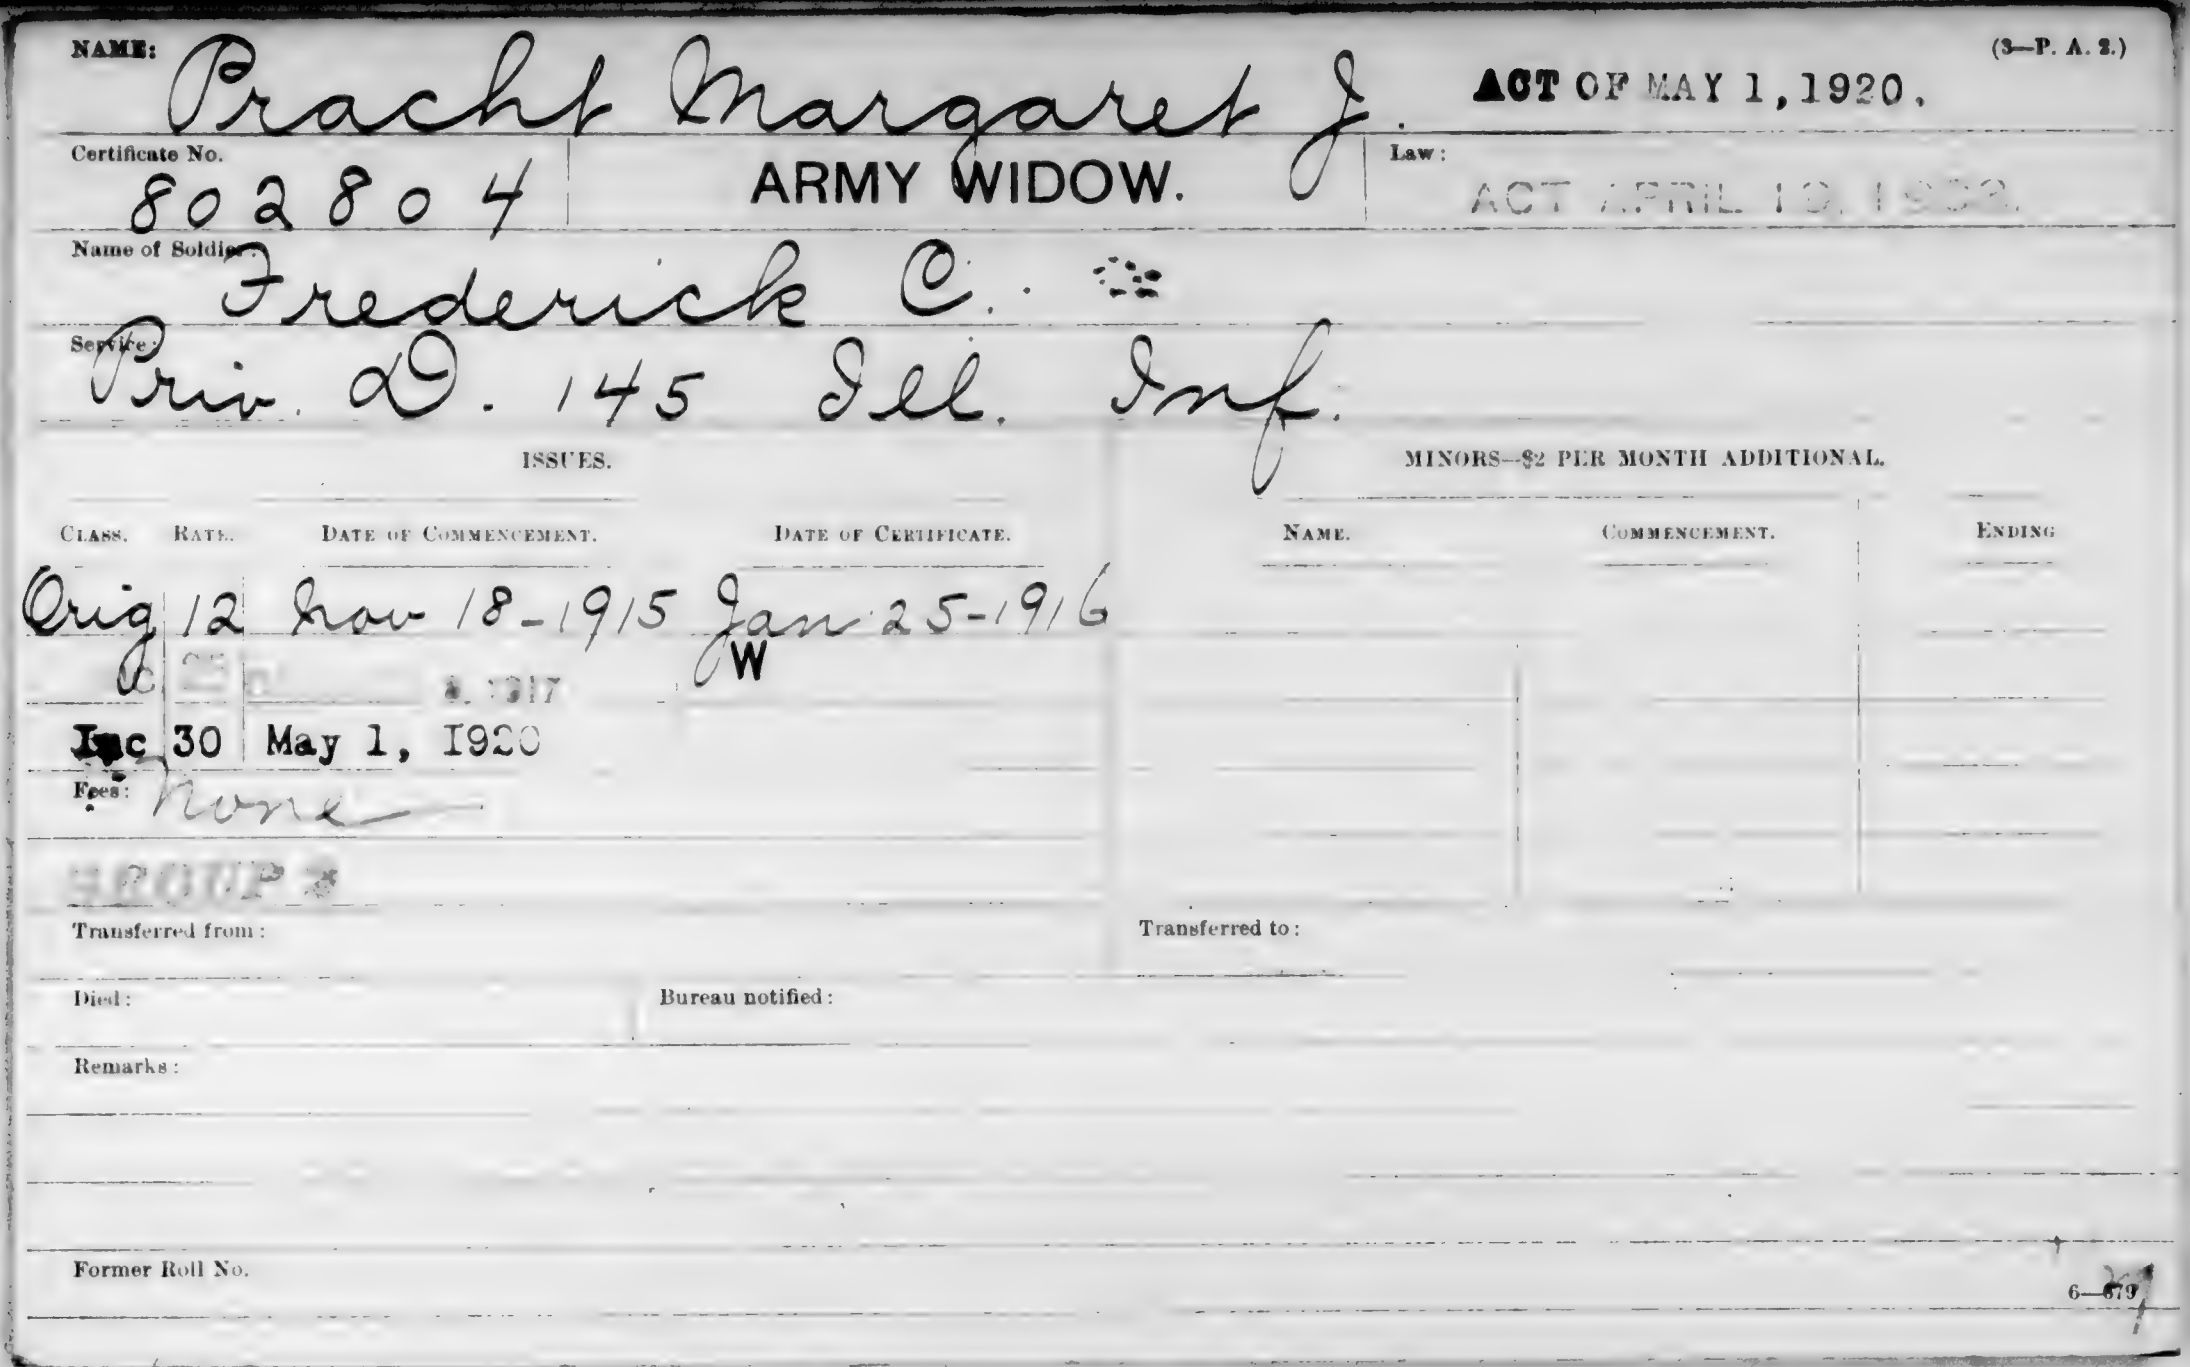 NAME: Pracht Margaret J. ACT OF MAY 1, 1920. (3—P. A. 2.)
Certificate No. 802804 ARMY WIDOW. Law: ACT APRIL 19, 1908.
Name of Soldier: Frederick C.
Service: Priv. D. 145 Ill. Inf.
ISSUES. MINORS—$2 PER MONTH ADDITIONAL.
CLASS. RATE. DATE OF COMMENCEMENT. DATE OF CERTIFICATE. NAME. COMMENCEMENT. ENDING
Orig 12 Nov 18-1915 Jan 25-1916
25 1917 W
Inc 30 May 1, 1920
Fees: None
GROUP
Transferred from: Transferred to:
Died: Bureau notified:
Remarks:
Former Roll No.
6—679